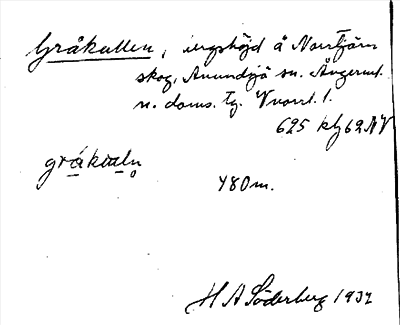 Gråkullen, bergshöjd å Norrtjärn
skog, Anundsjö sn. Ångerml.
n. doms. tg. V norrl. l.
625 kbl 62 NV
gråkuał̥n
480 m.
H A Söderberg 1932